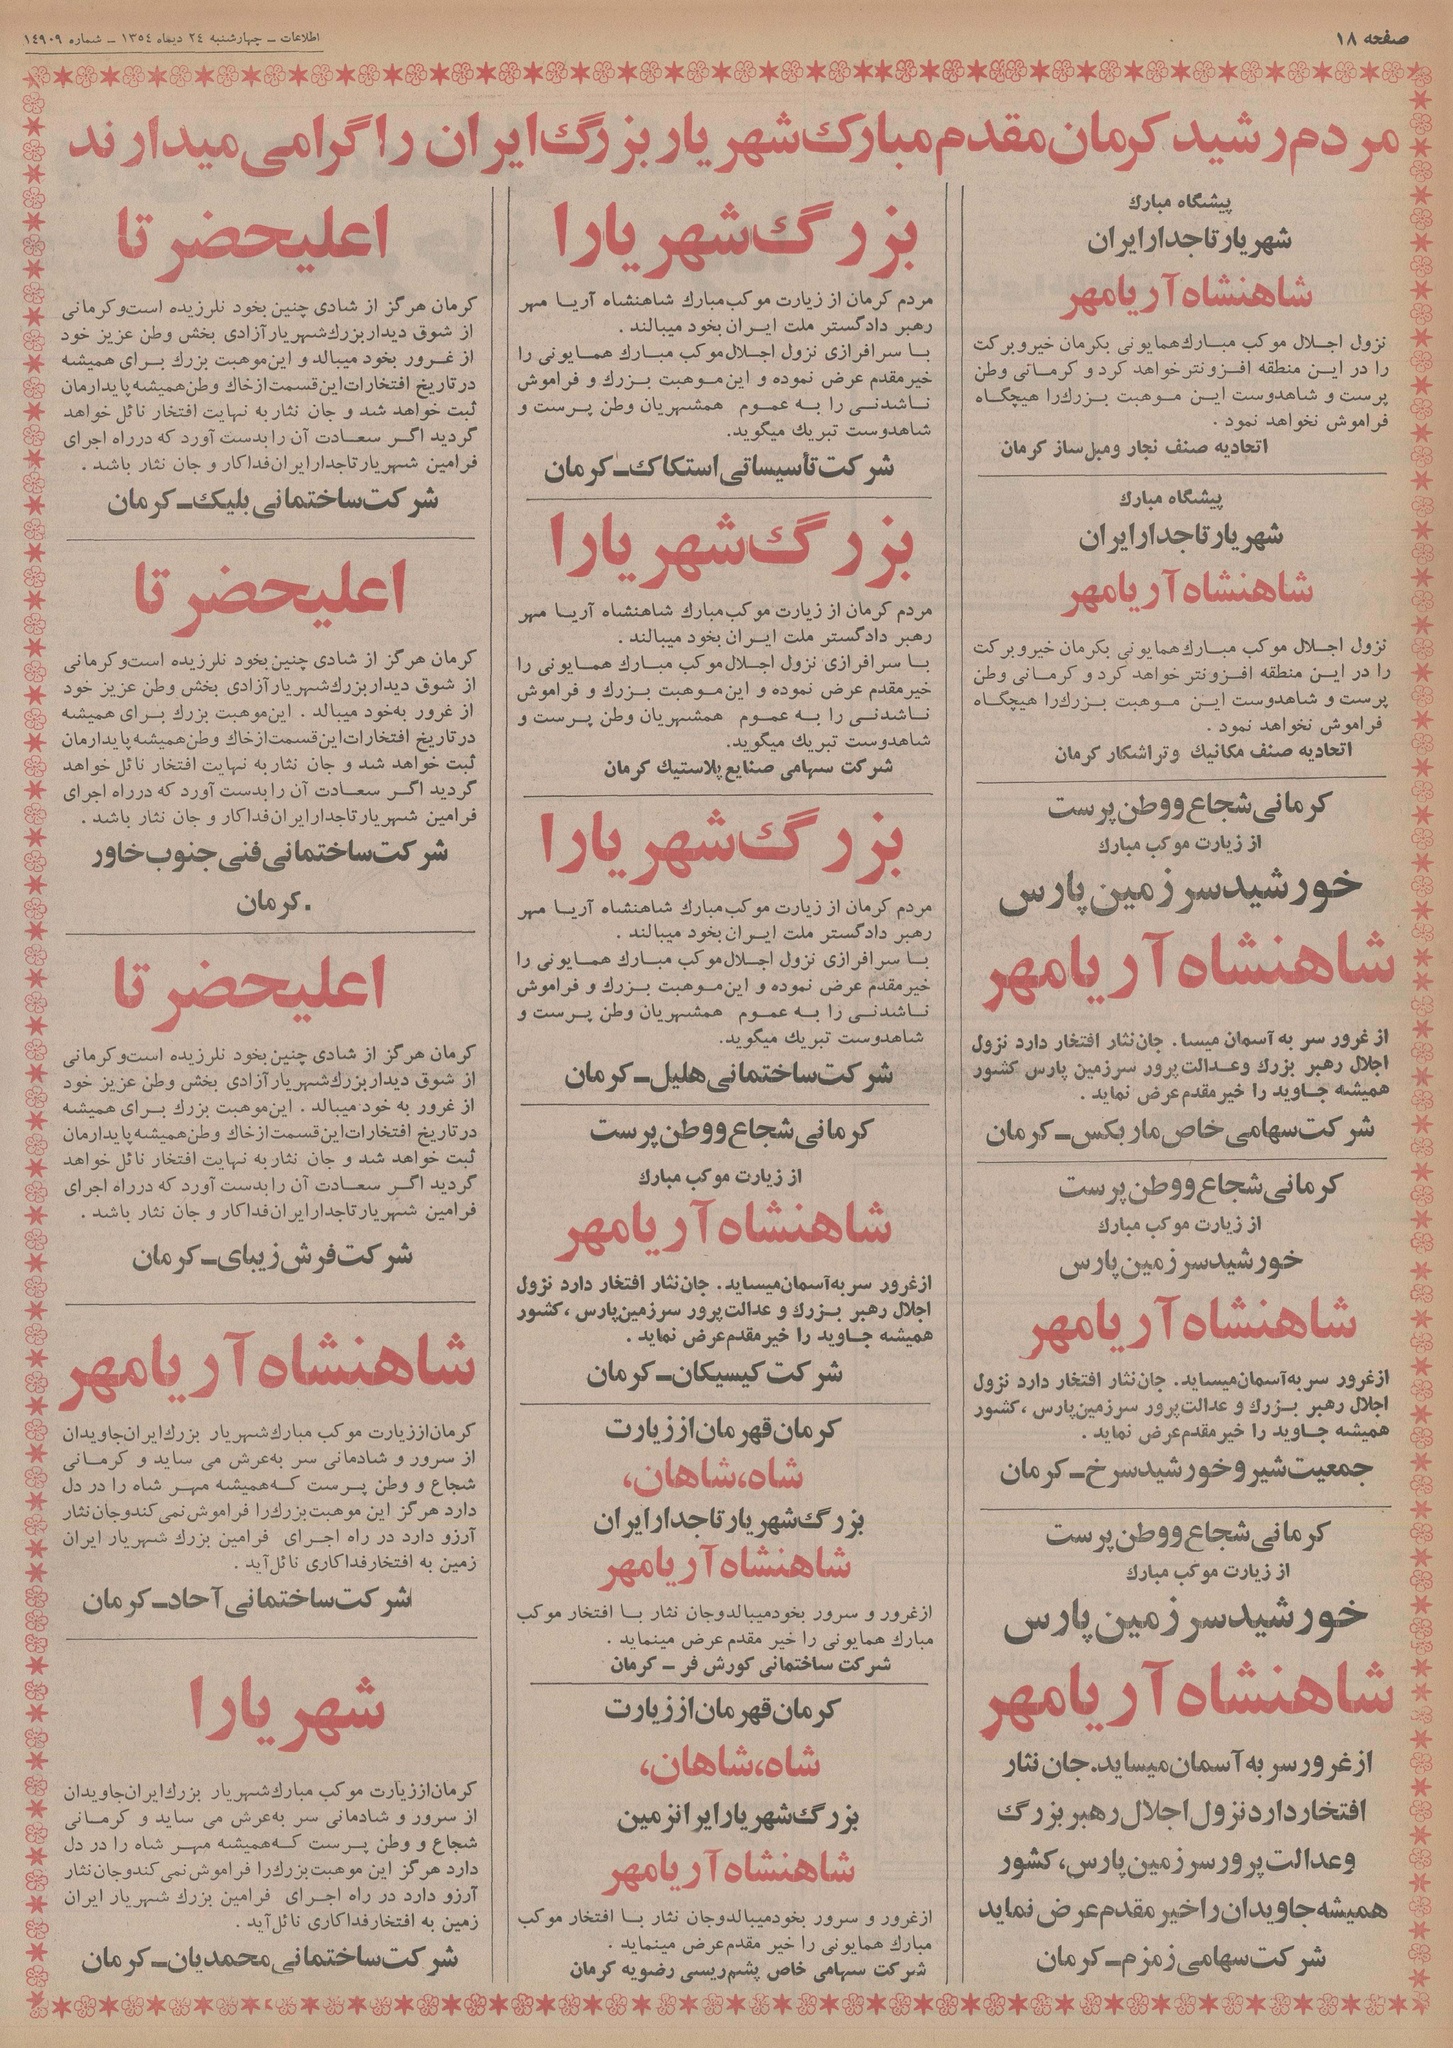 صفحه ۱۸
اطلاعات ـ چهارشنبه ۲۴ دیماه ۱۳۵۴ ـ شماره ۱۴۹۰۹
مردم رشید کرمان مقدم مبارک شهریار بزرگ ایران را گرامی میدارند
پیشگاه مبارک
شهریار تاجدار ایران
شاهنشاه آریامهر
نزول اجلال موکب مبارك همایونی بکرمان خیر و برکت
را در این منطقه افزونتر خواهد کرد و کرمانی وطن
پرست و شاهدوست این موهبت بزرك را هیچگاه
فراموش نخواهد نمود .
اتحادیه صنف نجار و مبل ساز کرمان
پیشگاه مبارک
شهریار تاجدار ایران
شاهنشاه آریامهر
نزول اجلال موکب مبارك همایونی بکرمان خیر و برکت
را در این منطقه افزونتر خواهد کرد و کرمانی وطن
پرست و شاهدوست این موهبت بزرك را هیچگاه
فراموش نخواهد نمود .
اتحادیه صنف مکانیك وتراشکار کرمان
کرمانی شجاع و وطن پرست
از زیارت موکب مبارك
خورشید سرزمین پارس
شاهنشاه آریامهر
از غرور سر به آسمان میسا . جان نثار افتخار دارد نزول
اجلال رهبر بزرك وعدالت پرور سرزمین پارس کشور
همیشه جاوید را خیر مقدم عرض نماید .
شرکت سهامی خاص ماربکس ـ کرمان
کرمانی شجاع و وطن پرست
از زیارت موکب مبارك
خورشید سرزمین پارس
شاهنشاه آریامهر
از غرور سر به آسمان میساید . جان نثار افتخار دارد نزول
اجلال رهبر بزرك و عدالت پرور سرزمین پارس ، کشور
همیشه جاوید را خیر مقدم عرض نماید .
جمعیت شیر و خورشید سرخ ـ کرمان
کرمانی شجاع و وطن پرست
از زیارت موکب مبارك
خورشید سرزمین پارس
شاهنشاه آریامهر
از غرور سر به آسمان میساید . جان نثار
افتخار دارد نزول اجلال رهبر بزرگ
و عدالت پرور سرزمین پارس ، کشور
همیشه جاویدان را خیر مقدم عرض نماید
شرکت سهامی زمزم ـ کرمان
بزرگ شهریارا
مردم کرمان از زیارت موکب مبارك شاهنشاه آریا مهر
رهبر دادگستر ملت ایران بخود میبالند .
با سرافرازی نزول اجلال موکب مبارك همایونی را
خیر مقدم عرض نموده و این موهبت بزرك و فراموش
ناشدنی را به عموم همشهریان وطن پرست و
شاهدوست تبریك میگوید.
شرکت تأسیساتی استکاک ـ کرمان
بزرگ شهریارا
مردم کرمان از زیارت موکب مبارك شاهنشاه آریا مهر
رهبر دادگستر ملت ایران بخود میبالند .
با سرافرازی نزول اجلال موکب مبارك همایونی را
خیر مقدم عرض نموده و این موهبت بزرك و فراموش
ناشدنی را به عموم همشهریان وطن پرست و
شاهدوست تبریك میگوید.
شرکت سهامی صنایع پلاستیك کرمان
بزرگ شهریارا
مردم کرمان از زیارت موکب مبارك شاهنشاه آریا مهر
رهبر دادگستر ملت ایران بخود میبالند .
با سرافرازی نزول اجلال موکب مبارك همایونی را
خیر مقدم عرض نموده و این موهبت بزرك و فراموش
ناشدنی را به عموم همشهریان وطن پرست و
شاهدوست تبریك میگوید.
شرکت ساختمانی هلیل ـ کرمان
کرمانی شجاع و وطن پرست
از زیارت موکب مبارك
شاهنشاه آریامهر
از غرور سر به آسمان میساید . جان نثار افتخار دارد نزول
اجلال رهبر بزرك و عدالت پرور سرزمین پارس ، کشور
همیشه جاوید را خیر مقدم عرض نماید .
شرکت کیسیکان ـ کرمان
کرمان قهرمان از زیارت
شاه ، شاهان ،
بزرگ شهریار تاجدار ایران
شاهنشاه آریامهر
از غرور و سرور بخود میبالد و جان نثار با افتخار موکب
مبارك همایونی را خیر مقدم عرض مینماید .
شرکت ساختمانی کورش فر ـ کرمان
کرمان قهرمان از زیارت
شاه ، شاهان ،
بزرگ شهریار ایرانزمین
شاهنشاه آریامهر
از غرور و سرور بخود میبالد و جان نثار با افتخار موکب
مبارك همایونی را خیر مقدم عرض مینماید .
شرکت سهامی خاص پشم ریسی رضویه کرمان
اعلیحضرتا
کرمان هرگز از شادی چنین بخود نلرزیده است و کرمانی
از شوق دیدار بزرك شهریار آزادی بخش وطن عزیز خود
از غرور بخود میبالد و این موهبت بزرك برای همیشه
در تاریخ افتخارات این قسمت از خاك وطن همیشه پایدارمان
ثبت خواهد شد و جان نثار به نهایت افتخار نائل خواهد
گردید اگر سعادت آن را بدست آورد که در راه اجرای
فرامین شهریار تاجدار ایران فداکار و جان نثار باشد .
شرکت ساختمانی بلیک ـ کرمان
اعلیحضرتا
کرمان هرگز از شادی چنین بخود نلرزیده است و کرمانی
از شوق دیدار بزرك شهریار آزادی بخش وطن عزیز خود
از غرور به خود میبالد . این موهبت بزرك برای همیشه
در تاریخ افتخارات این قسمت از خاك وطن همیشه پایدارمان
ثبت خواهد شد و جان نثار به نهایت افتخار نائل خواهد
گردید اگر سعادت آن را بدست آورد که در راه اجرای
فرامین شهریار تاجدار ایران فداکار و جان نثار باشد .
شرکت ساختمانی فنی جنوب خاور
. کرمان
اعلیحضرتا
کرمان هرگز از شادی چنین بخود نلرزیده است و کرمانی
از شوق دیدار بزرك شهریار آزادی بخش وطن عزیز خود
از غرور به خود میبالد . این موهبت بزرك برای همیشه
در تاریخ افتخارات این قسمت از خاك وطن همیشه پایدارمان
ثبت خواهد شد و جان نثار به نهایت افتخار نائل خواهد
گردید اگر سعادت آن را بدست آورد که در راه اجرای
فرامین شهریار تاجدار ایران فداکار و جان نثار باشد .
شرکت فرش زیبای ـ کرمان
شاهنشاه آریامهر
کرمان از زیارت موکب مبارك شهریار بزرك ایران جاویدان
از سرور و شادمانی سر به عرش می ساید و کرمانی
شجاع و وطن پرست که همیشه مهر شاه را در دل
دارد هرگز این موهبت بزرك را فراموش نمی کند و جان نثار
آرزو دارد در راه اجرای فرامین بزرك شهریار ایران
زمین به افتخار فداکاری نائل آید .
شرکت ساختمانی آحاد ـ کرمان
شهریارا
کرمان از زیارت موکب مبارك شهریار بزرك ایران جاویدان
از سرور و شادمانی سر به عرش می ساید و کرمانی
شجاع و وطن پرست که همیشه مهر شاه را در دل
دارد هرگز این موهبت بزرك را فراموش نمی کند و جان نثار
آرزو دارد در راه اجرای فرامین بزرك شهریار ایران
زمین به افتخار فداکاری نائل آید .
شرکت ساختمانی محمدیان ـ کرمان